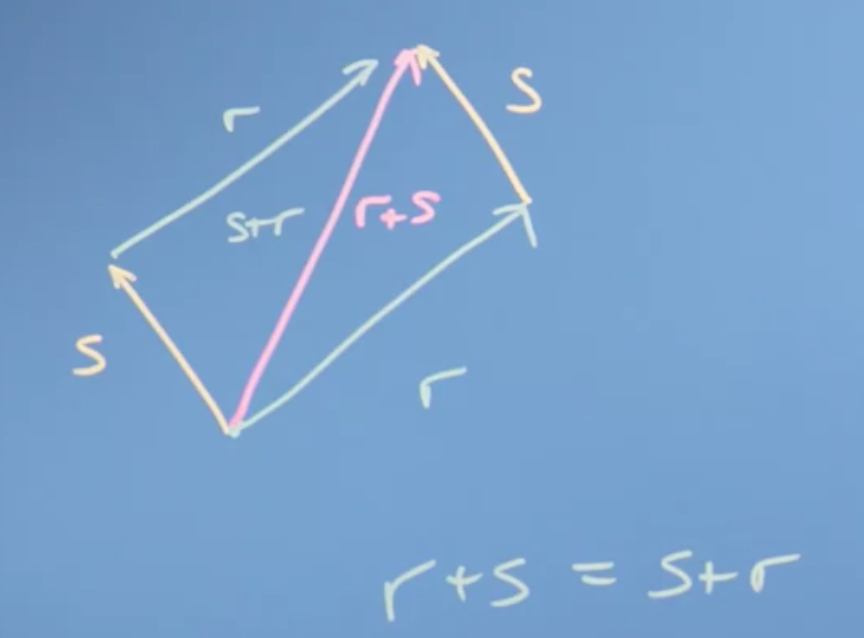 s
r
s+r
r+s
s
r
r+s = s+r